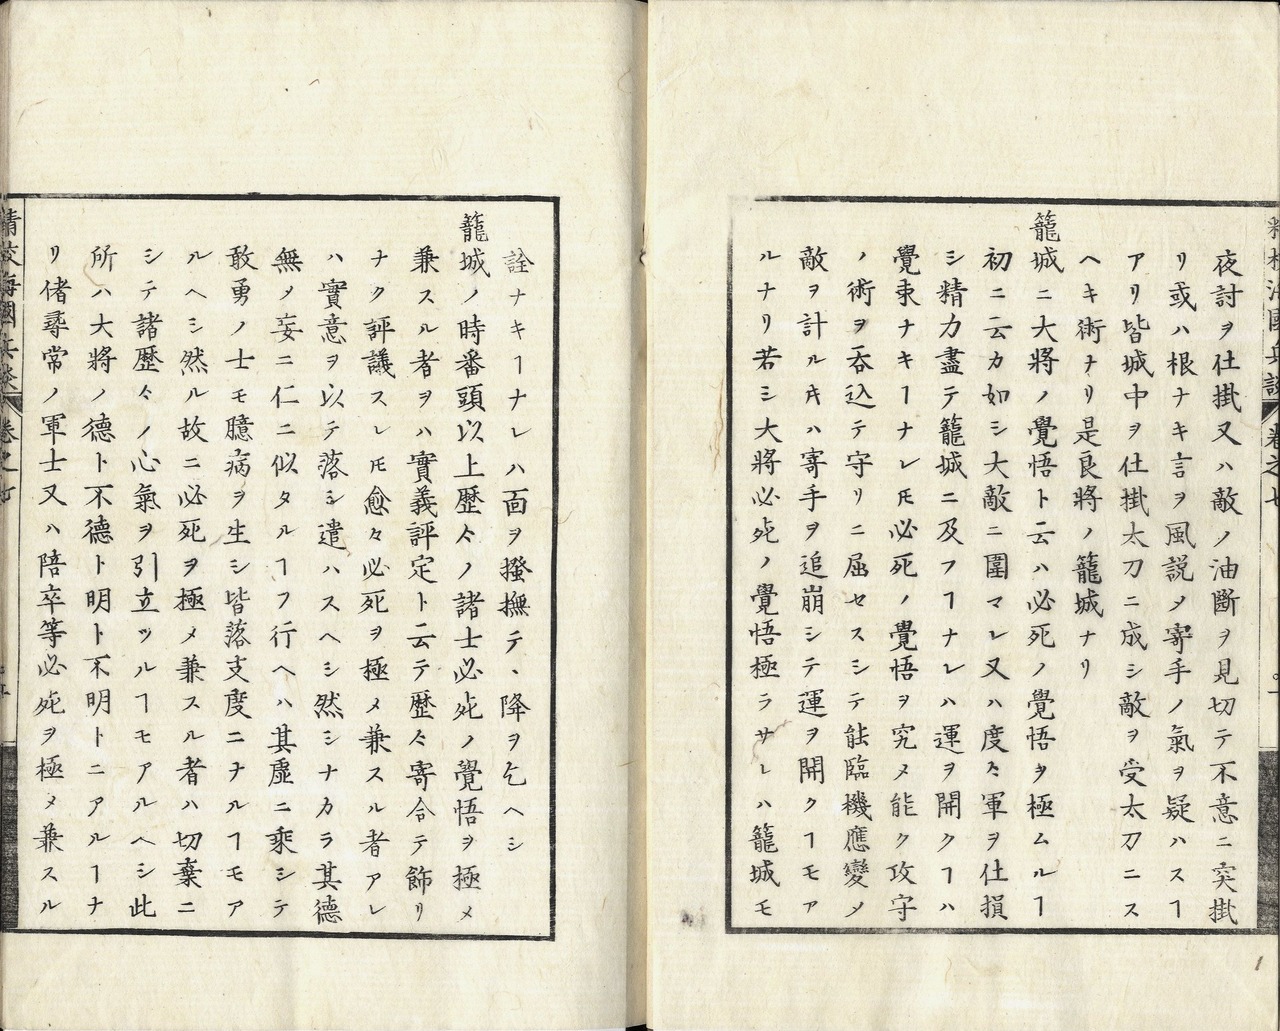 夜討ヲ仕掛又ハ敵ノ油斷ヲ見切テ不意ニ突掛
リ或ハ根ナキ言ヲ風説〆寄手ノ氣ヲ疑ハスヿ
アリ皆城中ヲ仕掛太刀ニ成シ敵ヲ受太刀ニス
ヘキ術ナリ是良將ノ籠城ナリ
籠城ニ大將ノ覺悟ト云ハ必死ノ覺悟ヲ極ムルヿ
初ニ云カ如シ大敵ニ圍マレ又ハ度々軍ヲ仕損
シ精力盡テ籠城ニ及フヿナレハ運ヲ開クヿハ
覺束ナキヿナレ𪜈必死ノ覺悟ヲ究メ能ク攻守
ノ術ヲ呑込テ守リニ屈セスシテ能臨機應變〆
敵ヲ計ル𪜈ハ寄手ヲ追崩シテ運ヲ開クヿモア
ルナリ若シ大將必死ノ覺悟極ラサレハ籠城モ
詮ナキヿナレハ面ヲ撥撫テ、降ヲ乞ヘシ
籠城ノ時番頭以上歷々ノ諸士必死ノ覺悟ヲ極メ
兼スル者ヲハ實義評定ト云テ歷々寄合テ飾リ
ナク評議スレ𪜈愈々必死ヲ極メ兼スル者アレ
ハ實意ヲ以テ落シ遣ハスヘシ然シナカラ其德
無〆妄ニ仁ニ似タルヿフ行ヘハ其虛ニ乘シテ
敢勇ノ士モ臆病ヲ生シ皆落支度ニナルヿモア
ルヘシ然ル故ニ必死ヲ極メ兼スル者ハ切棄ニ
シテ諸歷々ノ心氣ヲ引立ツルヿモアルヘシ此
所ハ大將ノ德ト不德ト明ト不明トニアルヿナ
リ偖尋常ノ軍士又ハ陪卒等必死ヲ極メ兼スル
精校海國兵談 卷之七